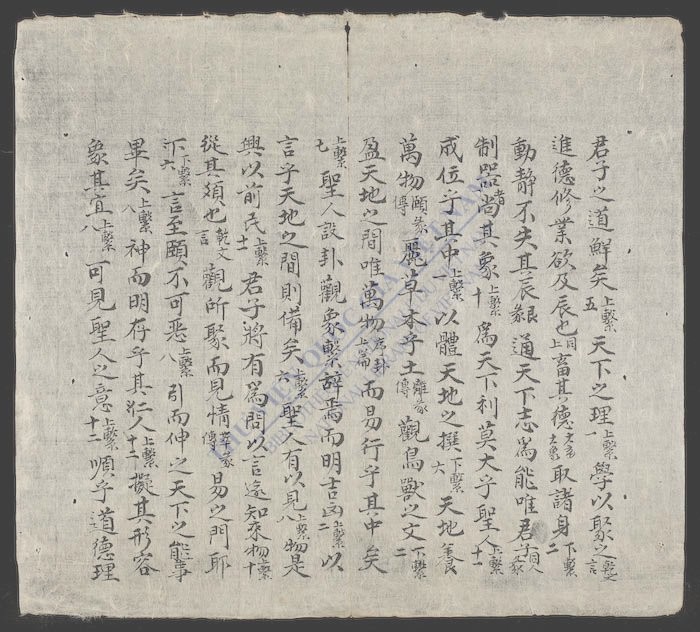 君子之道鮮矣上繫五天下之理上繫一學以聚之乾文言
進德修業欲及辰也同上畜其德大畜大象取諸身下繫二
動靜不失其辰艮彖通天下志為能唯君子同人彖
制器者尚其象上繫十為天下利莫大乎聖人上繫十一
成位乎其中上繫一以體天地之撰下繫六天地養
萬物頤彖傳麗草木乎土離彖傳觀鳥獸之文下繫二
盈天地之間唯萬物序卦上篇而易行乎其中矣
上繫七聖人設卦觀象繫辭焉而明吉凶上繫二以
言乎天地之間則備矣上繫六聖人有以見上繫八物是
興以前民上繫十一君子將有為問以言遂知來物上繫十
從其類也乾文言觀所聚而見情萃彖傳易之門耶
下繫六言至賾不可惡上繫八引而伸之天下之能事
畢矣上繫八神而明存乎其人上繫十二擬其形容
象其宜上繫八可見聖人之意上繫十二順乎道德理